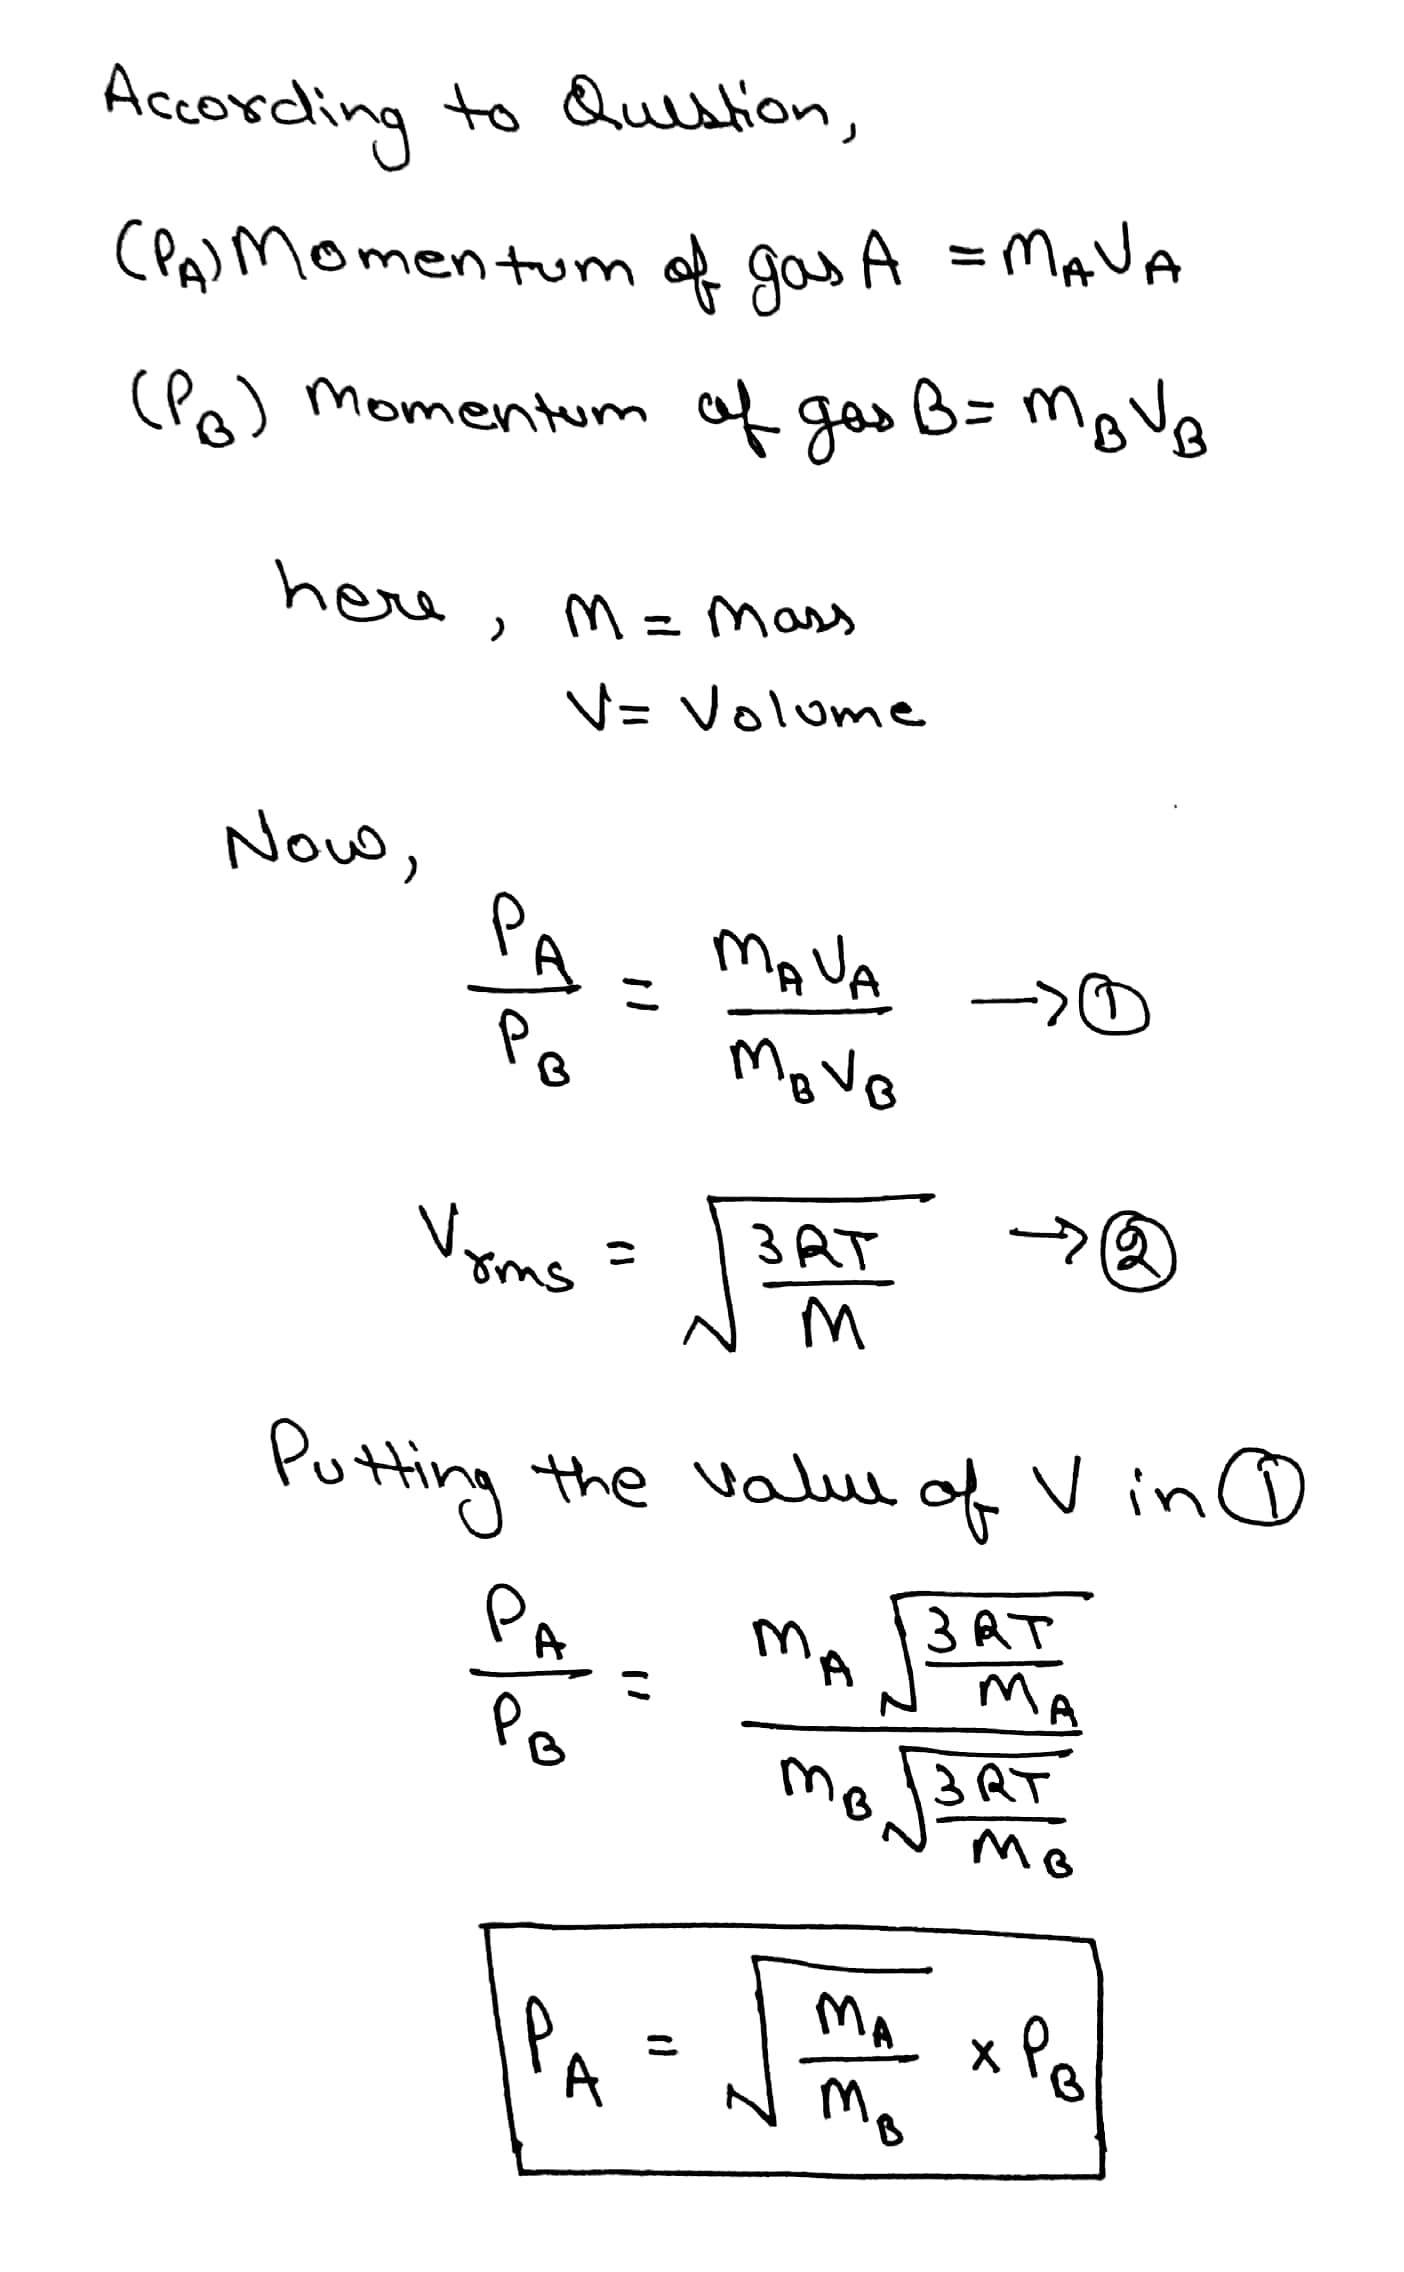 According to Question,
(PA) Momentum of gas A = MAVA
(PB) Momentum of gas B = MBVB
here, M = Mass
V = Volume
Now,
PA/PB = MAVA/MBVB → ①
Vrms = √(3RT/M) → ②
Putting the value of V in ①
PA/PB = MA√(3RT/MA) / MB√(3RT/MB)
PA = √(MA/MB) × PB